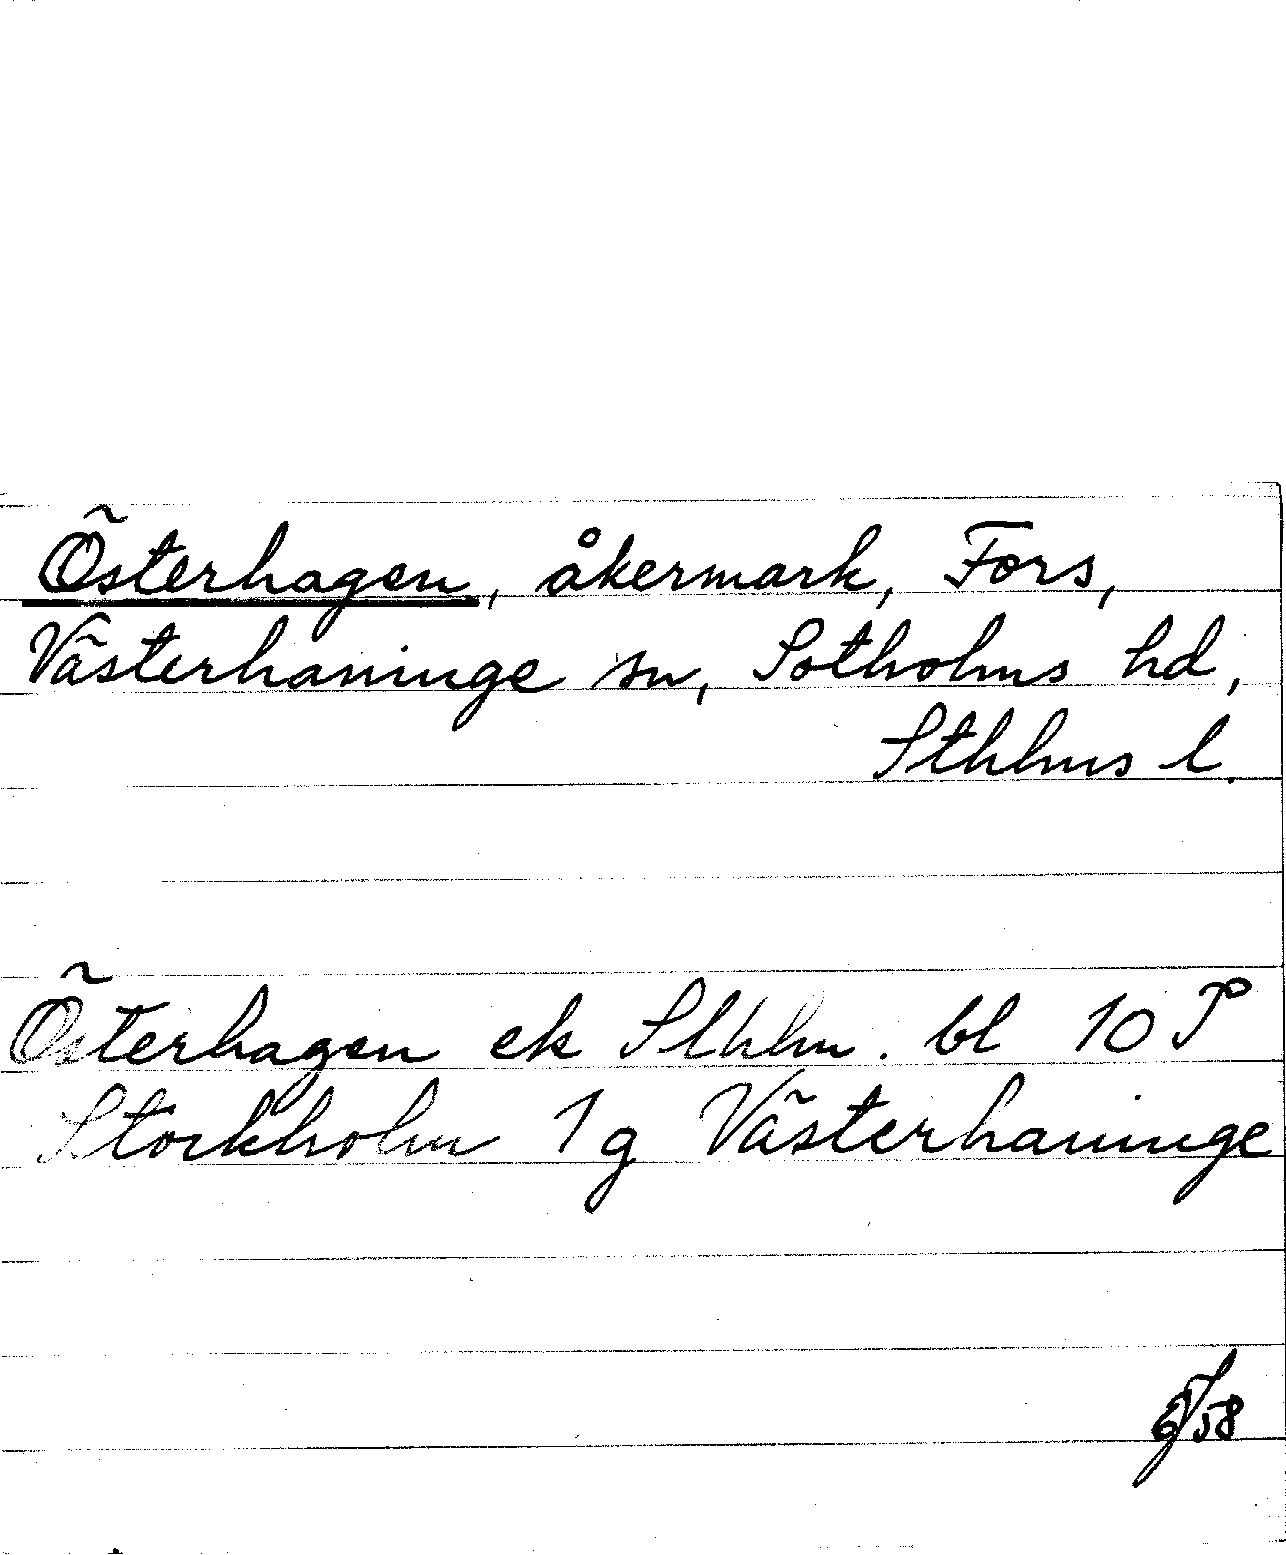 Österhagen, åkermark, Fors,
Västerhaninge sn, Sotholms hd,
Sthlms l.
Österhagen ek Sthlm. bl 10 P
Stockholm 1g Västerhaninge
58